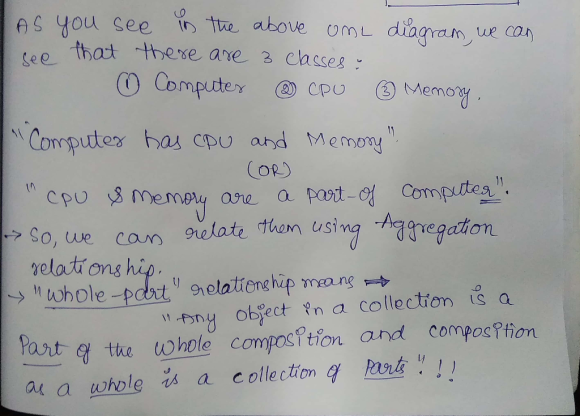 As you see in the above UML diagram, we can
see that there are 3 classes :
① Computer ② CPU ③ Memory.
"Computer has CPU and Memory".
(OR)
"CPU & Memory are a part-of computer".
→ So, we can relate them using Aggregation
relationship.
→ "whole-part" relationship means ⇒
"Any object in a collection is a
Part of the whole composition and composition
as a whole is a collection of Parts"!!!